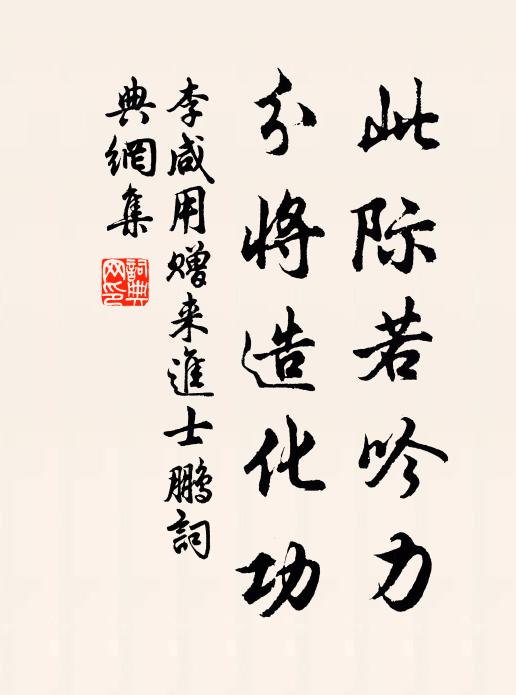 此际若吟力
分将造化功
李咸用赠来進士鵬詞
典網集
詞典
网印